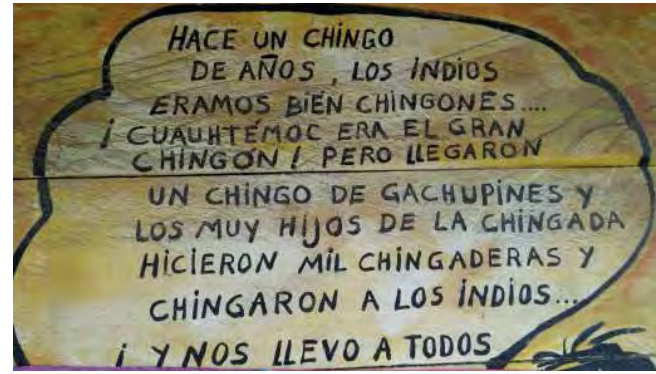 HACE UN CHINGO
DE AÑOS, LOS INDIOS
ERAMOS BIÉN CHINGONES....
¡CUAUHTÉMOC ERA EL GRAN
CHINGÓN! PERO LLEGARON
UN CHINGO DE GACHUPINES Y
LOS MUY HIJOS DE LA CHINGADA
HICIERON MIL CHINGADERAS Y
CHINGARON A LOS INDIOS...
¡Y NOS LLEVO A TODOS